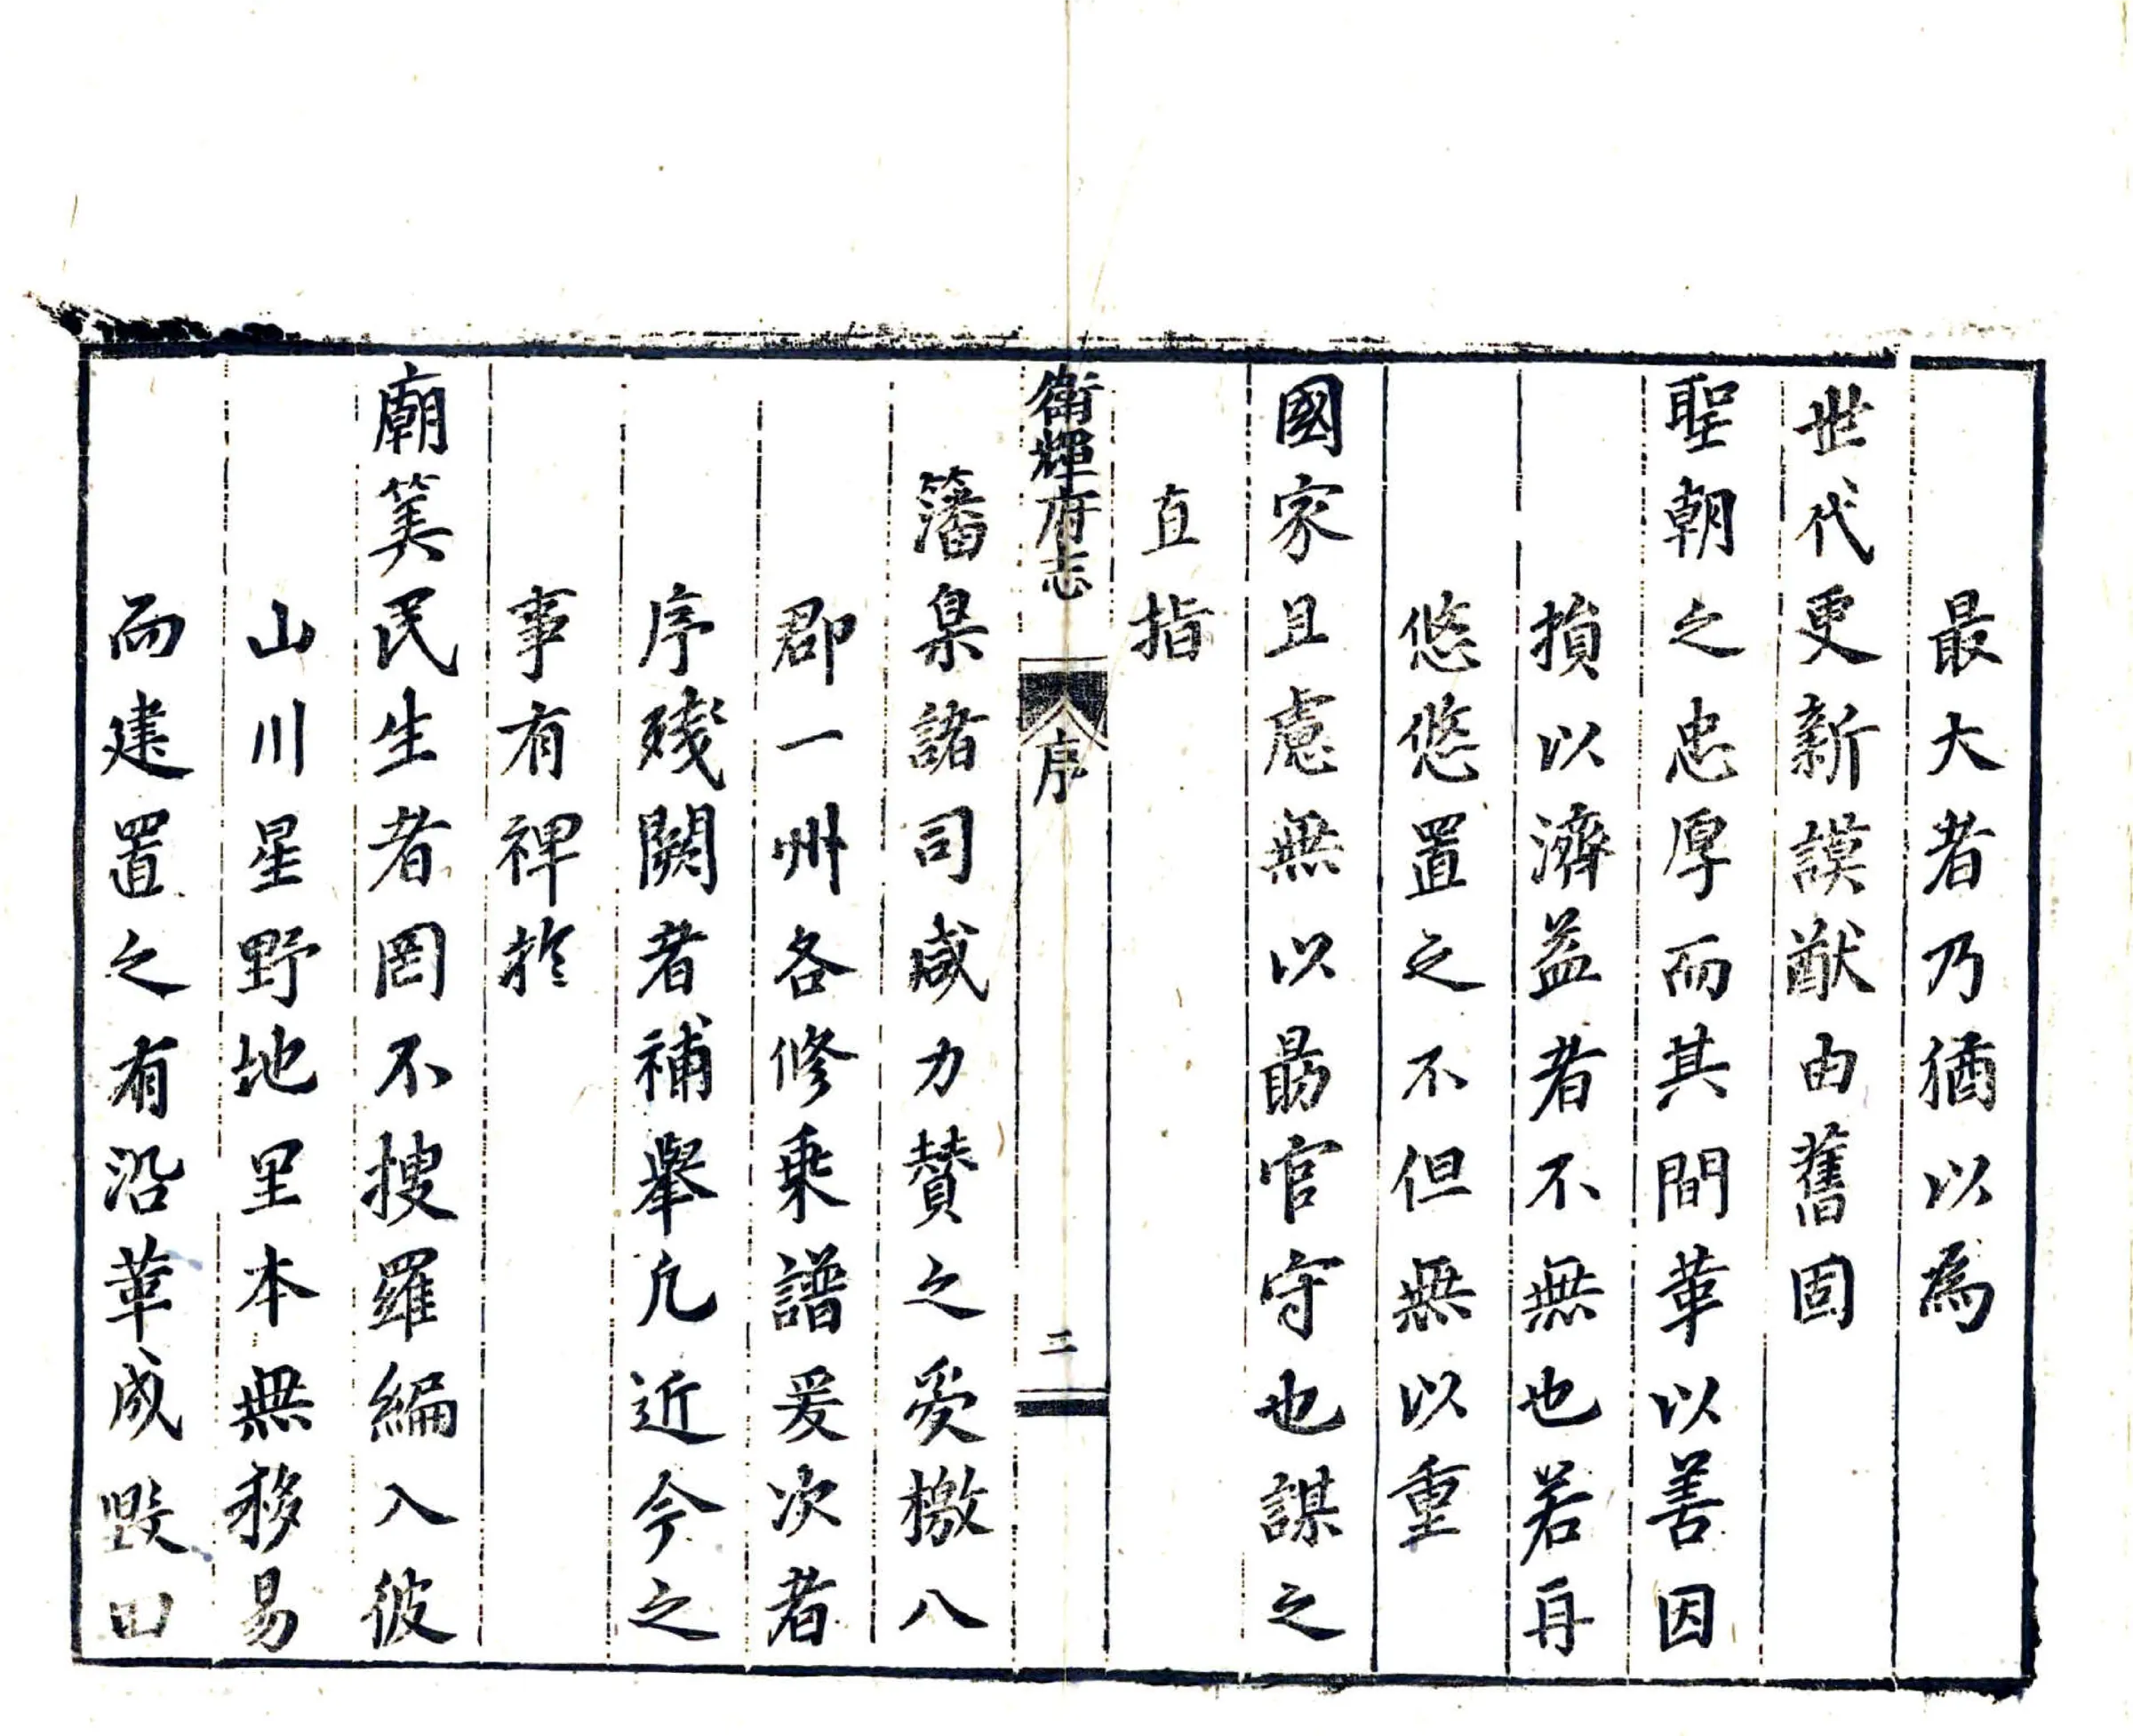 最大者乃猶以為
世代更新謨猷由舊固
聖朝之忠厚而其間革以善因
損以濟益者不無也若再
悠悠置之不但無以重
國家且慮無以勗官守也謀之
直指
衛輝府志
序
二
藩臬諸司咸力贊之爰檄八
郡一州各修乘譜爰次者
序殘闕者補舉凢近今之
事有裨於
廟筭民生者罔不搜羅編入彼
山川星野地里本無移易
而建置之有沿革成毀田